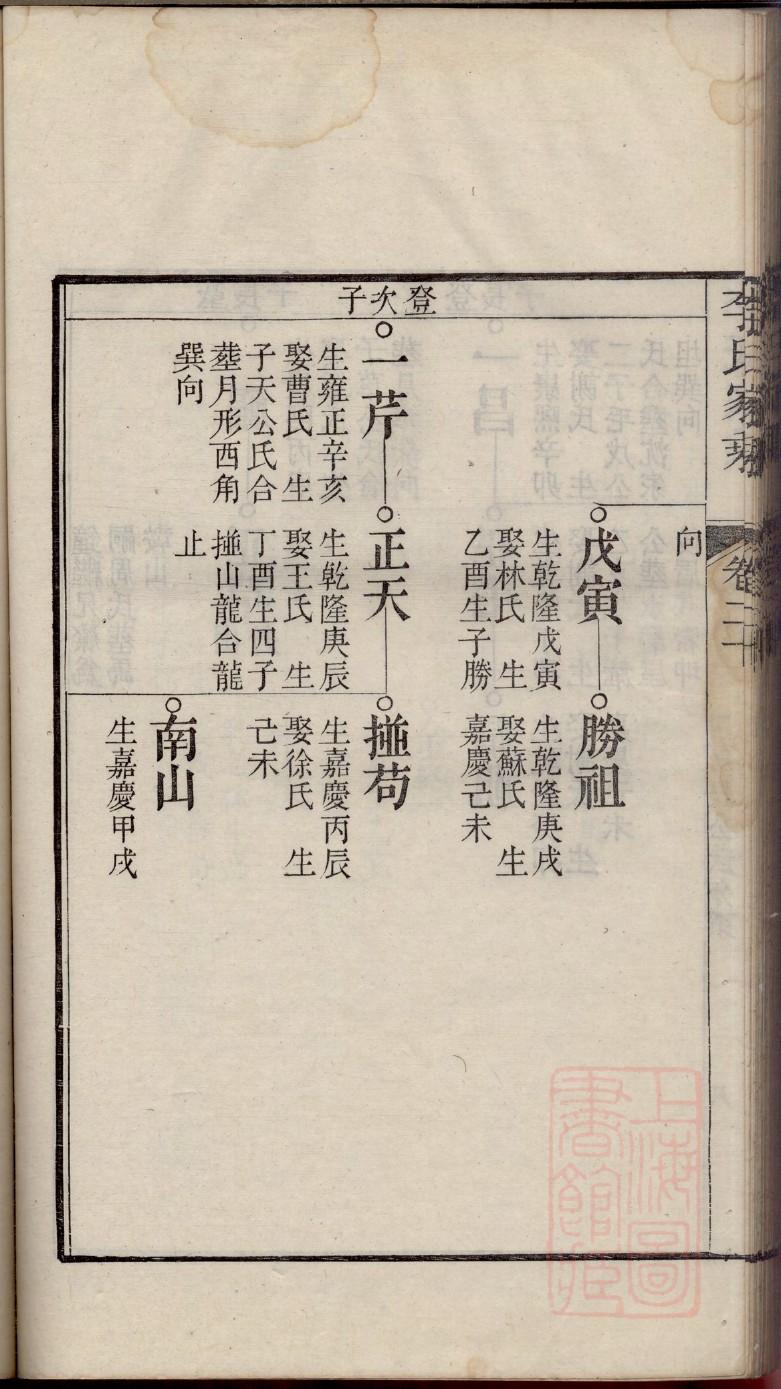 李氏家乘
卷二
向
戊寅
生乾隆戊寅
娶林氏 生
乙酉生子勝
勝祖
生乾隆庚戌
娶蘇氏 生
嘉慶己未
登次子
一芹
生雍正辛亥
娶曹氏 生
子天公氏合
塟月形酉角
巽向
正天
生乾隆庚辰
娶王氏 生
丁酉生四子
㨂山龍合龍
止
㨂苟
生嘉慶丙辰
娶徐氏 生
己未
南山
生嘉慶甲戌
上海圖
書館藏